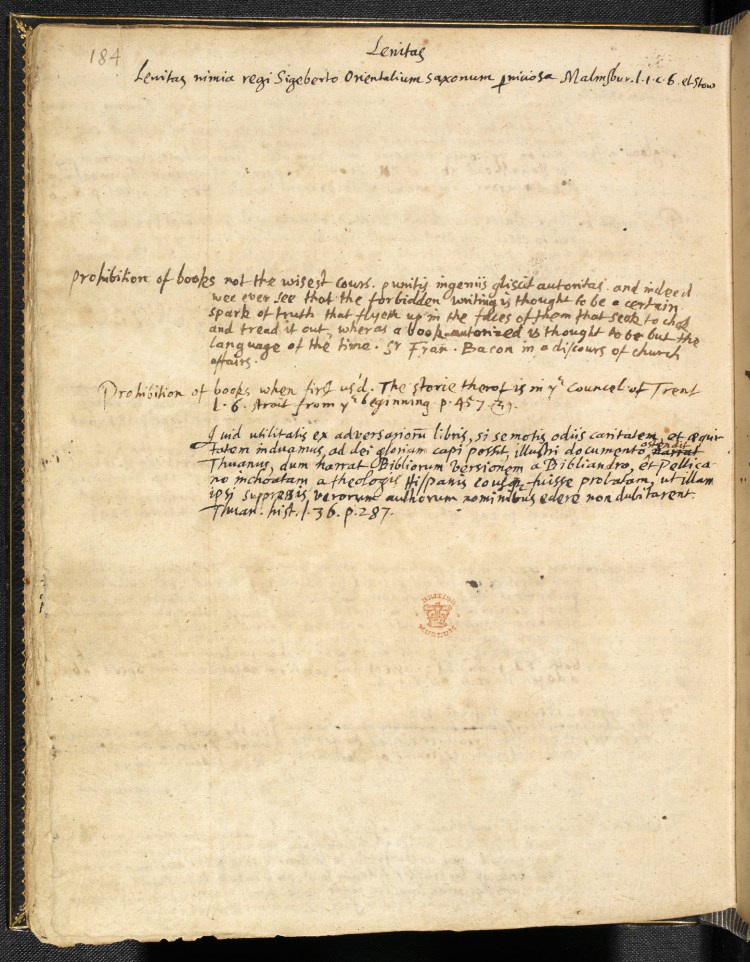 184
Lenitas
Lenitas nimia regi Sigeberto Orientalium saxonum pniciosa Malmsbur. l. 1. c. 6. et Stow
prohibition of books not the wisest cours. punitis ingeniis gliscit autoritas. and indeed
wee ever see that the forbidden writing is thought to be a certain
spark of truth that flyeth up in the faces of them that seek to chok
and tread it out, wheras a book autorized is thought to be but the
language of the time. Sr Fran. Bacon in a discours of church
affairs.
Prohibition of books when first us'd. The storie therof is in ye Councel of Trent
l. 6. strait from ye beginning p. 457. &c.
Quid utilitatis ex adversariorum libris, si semotis odiis caritatem, et æqui-
tatem induamus, ad dei gloriam capi possit, illustri documento ostendit narrat
Thuanus, dum narrat Bibliorum versionem a Bibliandro, et Pellica-
no inchoatam a theologis Hispanis eousque fuisse probatam, ut illam
ipsi suppressis verorum authorum nominibus edere non dubitarent.
Thuan. hist. l. 36. p. 287.
BRITISH
MUSEUM